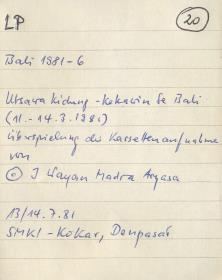 LP
20
Bali 1981-6
Utsawa Kidung - Kekawin Se Bali
(11.-14.3.1981)
Überspielung der Kassettenaufnahme
von
I Wayan Madra Aryasa
13/14.7.81
SMKI - KOKAR, Denpasar